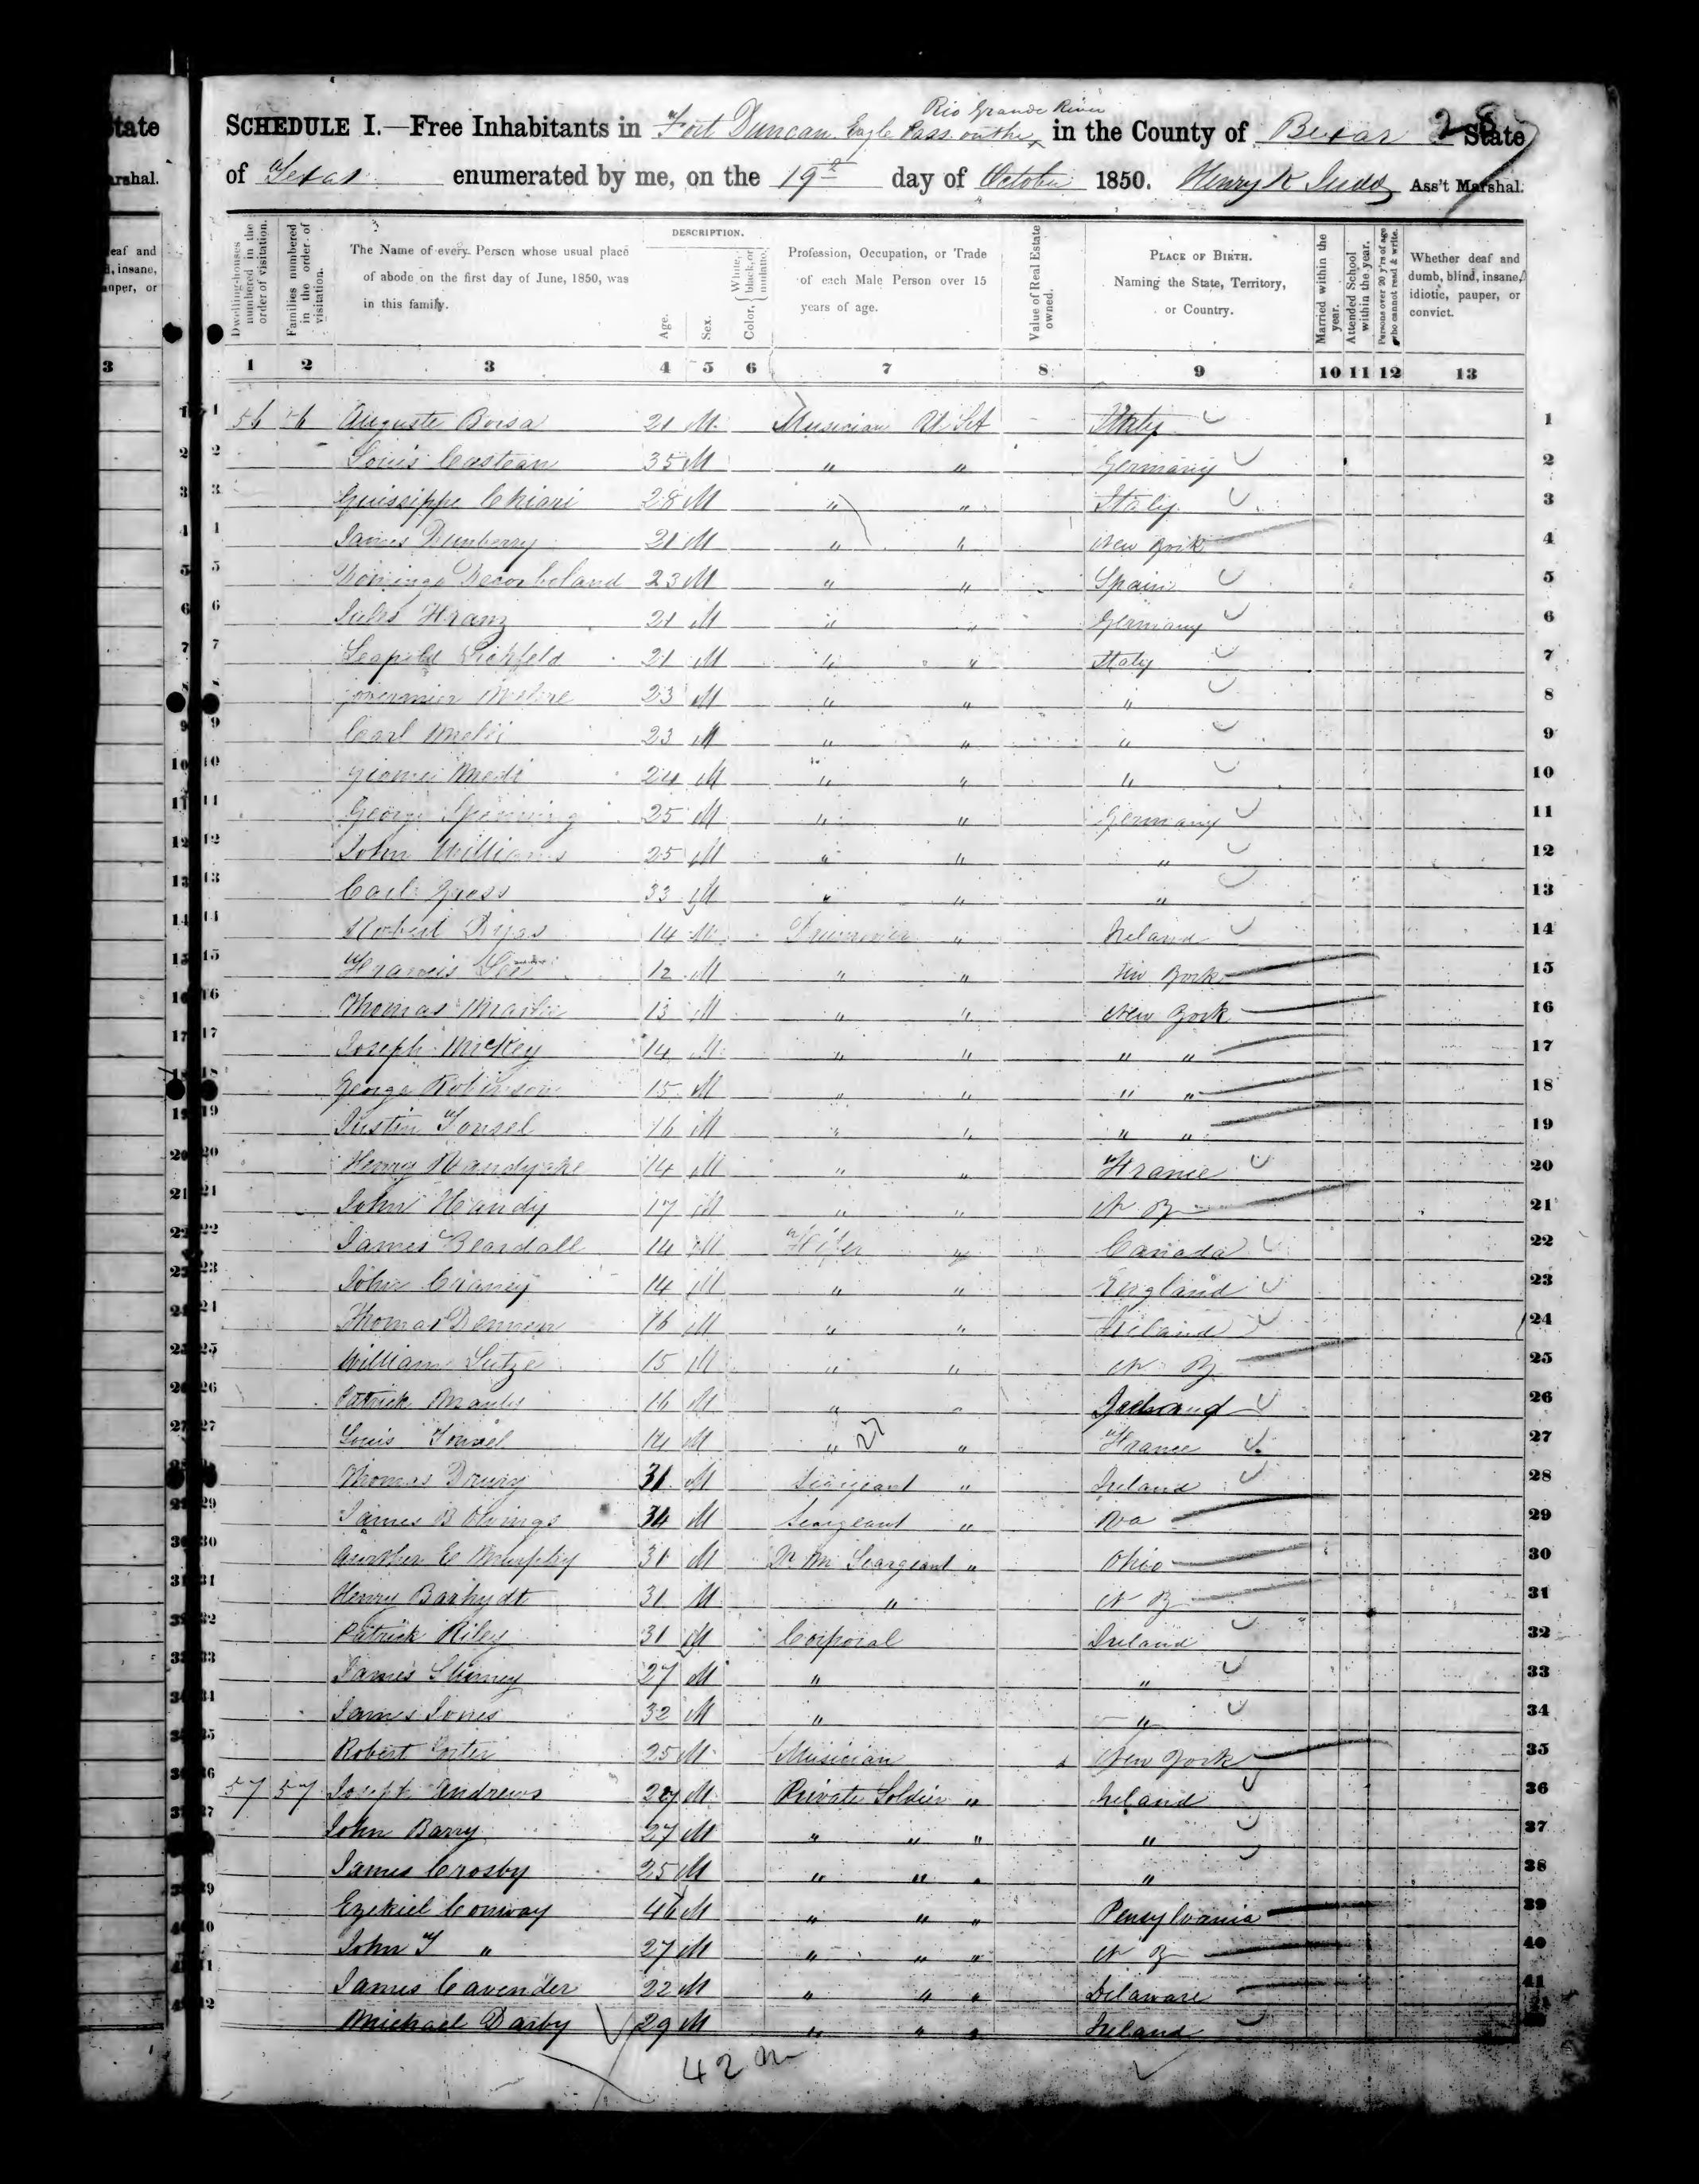 tate
arshal.
eaf and
d, insane,
auper, or
3
Rio Grande River
SCHEDULE I.—Free Inhabitants in Fort Duncan Eagle Pass on the x in the County of Bexar State
of Texas enumerated by me, on the 19th day of October 1850. Henry K Judd Ass't Marshal.
Dwelling-houses numbered in the order of visitation.
Families numbered in the order of visitation.
The Name of every Person whose usual place of abode on the first day of June, 1850, was in this family.
DESCRIPTION.
Age.
Sex.
Color, { White, black, or mulatto.
Profession, Occupation, or Trade of each Male Person over 15 years of age.
Value of Real Estate owned.
PLACE OF BIRTH. Naming the State, Territory, or Country.
Married within the year.
Attended School within the year.
Persons over 20 y'rs of age who cannot read & write.
Whether deaf and dumb, blind, insane, idiotic, pauper, or convict.
1 2 3 4 5 6 7 8 9 10 11 12 13
1 56 56 Auguste Borsa 21 M Musician U.S.A Italy 1
2 Louis Castean 35 M " " Germany 2
3 Guissippe Chiari 28 M " " Italy 3
4 James Dunberry 21 M " " New York 4
5 Domingo 23 M " " Spain 5
6 Jules Franz 21 M " " Germany 6
7 Leopold Lichfeld 21 M " " Italy 7
8 23 M " " " 8
9 Carl 23 M " " " 9
10 24 M " " " 10
11 George 25 M " " Germany 11
12 John Williams 25 M " " " 12
13 Carl Gross 33 M " " " 13
14 Robert Dyas 14 M Drummer " Ireland 14
15 Francis 12 M " " New York 15
16 Thomas 13 M " " New York 16
17 Joseph McKey 14 M " " " " 17
18 George Robinson 15 M " " " " 18
19 Justin Tonsel 16 M " " " " 19
20 Henry 14 M " " France 20
21 John Handy 17 M " " N Y 21
22 James Beardall 14 M Fifer " Canada 22
23 John Craney 14 M " " England 23
24 Thomas 16 M " " Ireland 24
25 William Lutze 15 M " " N Y 25
26 Patrick 16 M " " Ireland 26
27 Louis Tonsel 14 M " 27 " France 27
28 Thomas Drury 31 M Seargeant " Ireland 28
29 James B Owings 34 M Seargeant " Va 29
30 Arther E Murphy 31 M Qr M Seargeant " Ohio 30
31 Henry Barhydt 31 M " N Y 31
32 Patrick Riley 31 M Corporal Ireland 32
33 James 27 M " " 33
34 James Jones 32 M " " 34
35 Robert 25 M Musician New York 35
36 57 57 Joseph Andrews 27 M Private Soldier " Ireland 36
37 John Barry 27 M " " " " 37
38 James Crosby 25 M " " " " 38
39 Ezekiel Conway 46 M " " " Pensylvania 39
40 John T " 27 M " " " N Y 40
41 James Cavender 22 M " " " Delaware 41
42 Michael Darby 29 M " " " Ireland
42 m